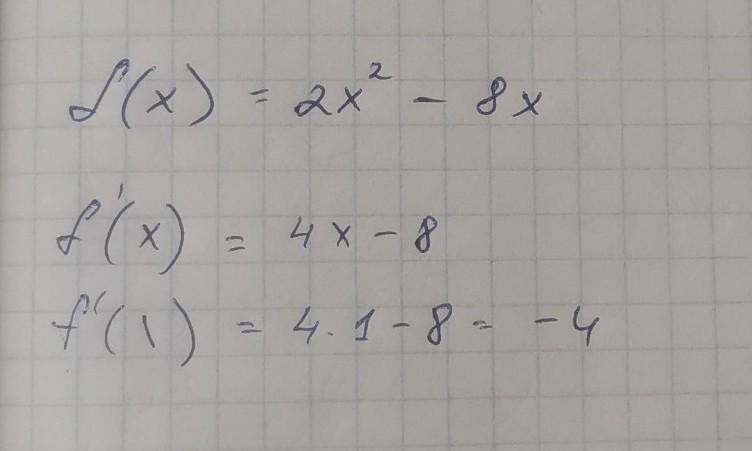 f(x) = 2x² - 8x
f'(x) = 4x - 8
f'(1) = 4·1 - 8 = -4